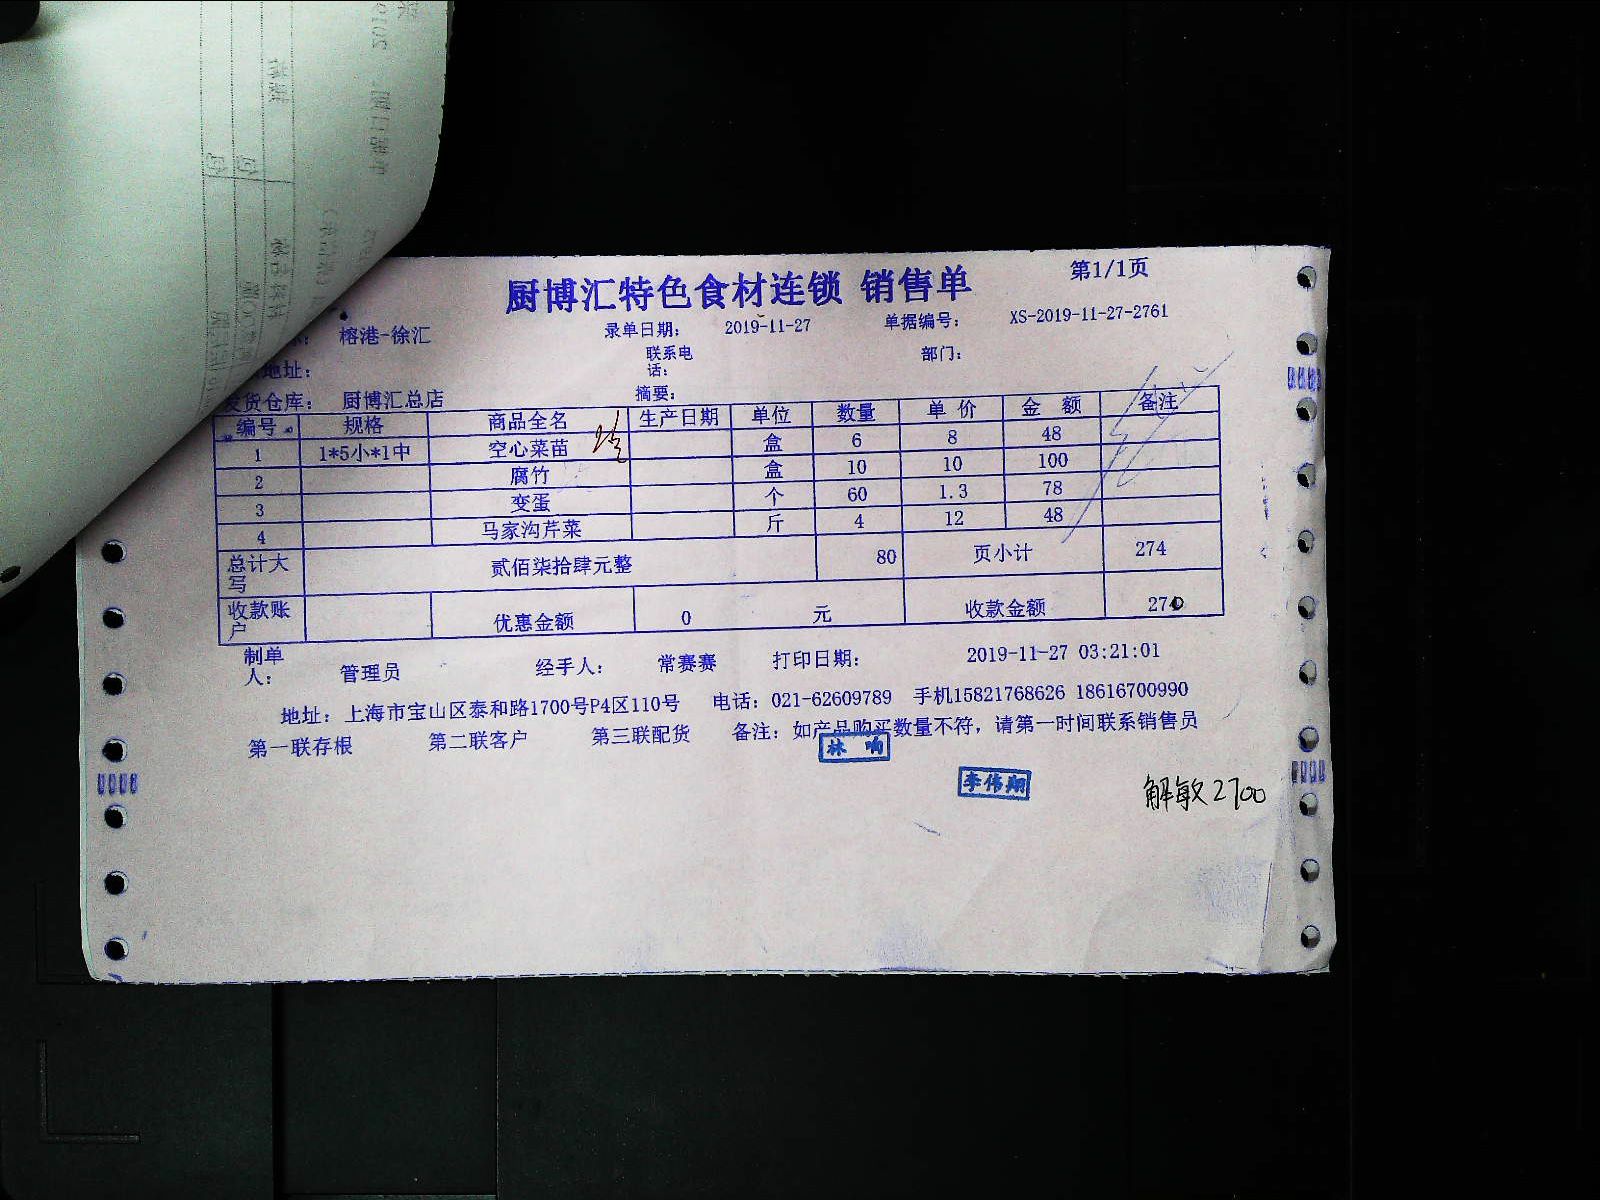 厨博汇特色食材连锁 销售单
第1/1页
榕港-徐汇 录单日期: 2019-11-27 单据编号: XS-2019-11-27-2761
地址: 联系电话: 部门:
发货仓库: 厨博汇总店 摘要:
编号 规格 商品全名 生产日期 单位 数量 单价 金额 备注
1 1*5小*1中 空心菜苗 盒 6 8 48
2 腐竹 盒 10 10 100
3 变蛋 个 60 1.3 78
4 马家沟芹菜 斤 4 12 48
总计大写 贰佰柒拾肆元整 80 页小计 274
收款账户 优惠金额 0 元 收款金额 270
制单人: 管理员 经手人: 常赛赛 打印日期: 2019-11-27 03:21:01
地址: 上海市宝山区泰和路1700号P4区110号 电话: 021-62609789 手机15821768626 18616700990
第一联存根 第二联客户 第三联配货 备注: 如产品购买数量不符, 请第一时间联系销售员
林 响
李伟翔
解敏2700